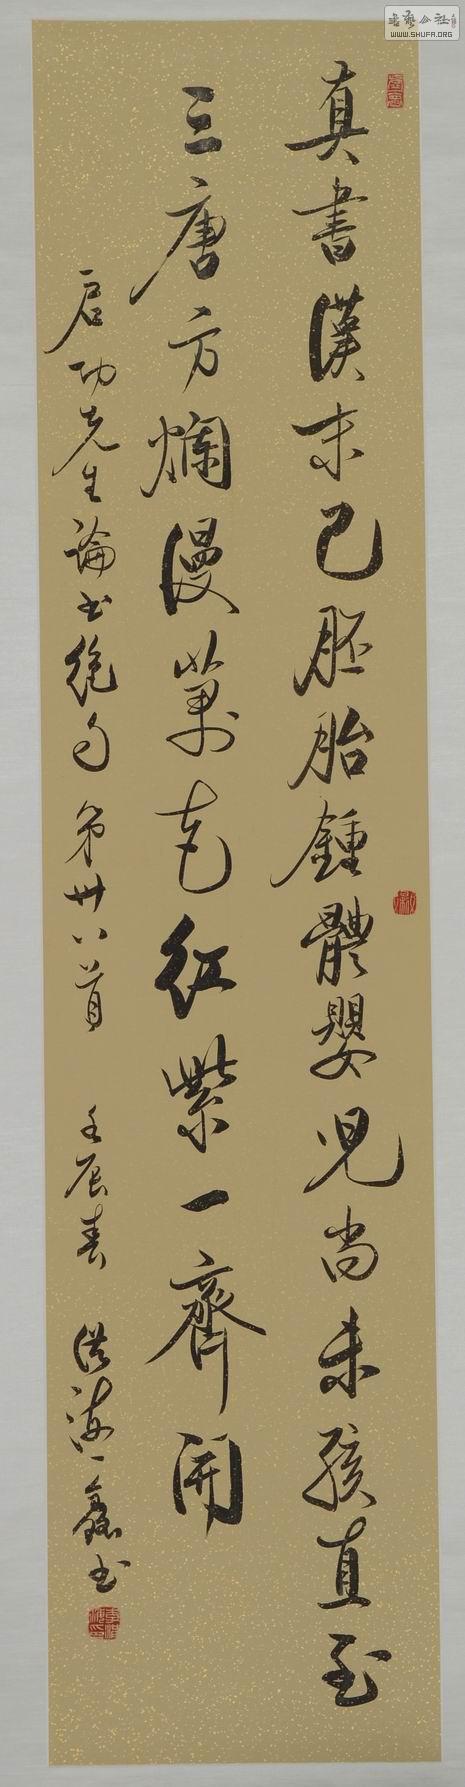 真書漢末已胚胎鍾體嬰児尚未孩直至
三唐方爛漫萬花紅紫一齊開
启功先生論书絶句 第卅八首 壬辰春 洪海 书
WWW.SHUFA.ORG